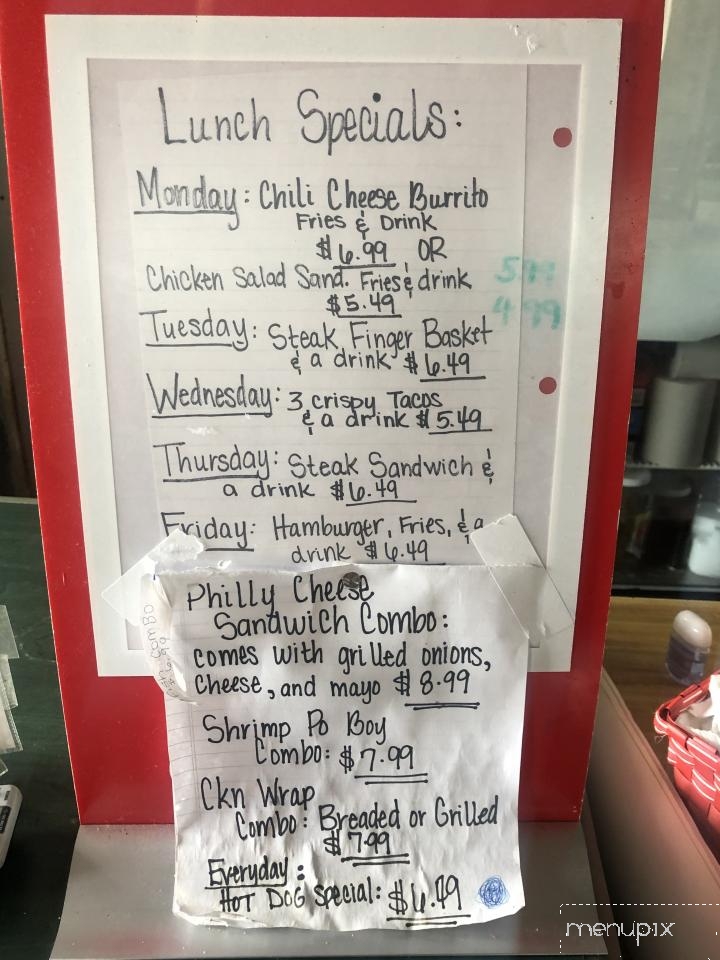 Lunch Specials:
Monday: Chili Cheese Burrito
Fries & Drink
$6.99 OR
Chicken Salad Sand. Fries & drink
$5.49
599
499
Tuesday: Steak Finger Basket
& a drink $6.49
Wednesday: 3 crispy Tacos
& a drink $5.49
Thursday: Steak Sandwich &
a drink $6.49
Friday: Hamburger, Fries, & a
drink $6.49
Philly Cheese
Sandwich Combo:
comes with grilled onions,
Cheese, and mayo $8.99
Shrimp Po Boy
Combo: $7.99
Ckn Wrap
Combo: Breaded or Grilled
$7.99
Everyday:
HOT DOG Special: $6.49
COMBO
menupix